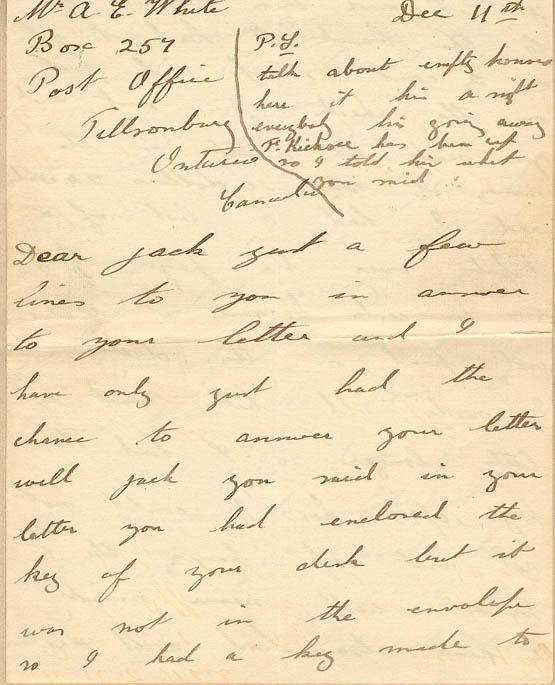 Mr A E. White
Box 257
Post Office
Tillsonburg
Ontario
Canada
Dec 11th
P.S.
talk about empty houses
here it his a
everybody his going away
P. has been up
so I told him what
you said
Dear jack just a few
lines to you in answer
to your letter and I
have only just had the
chance to answer your letter
will jack you said in your
letter you had enclosed the
key of your desk but it
was not in the envolope
so I had a key made to